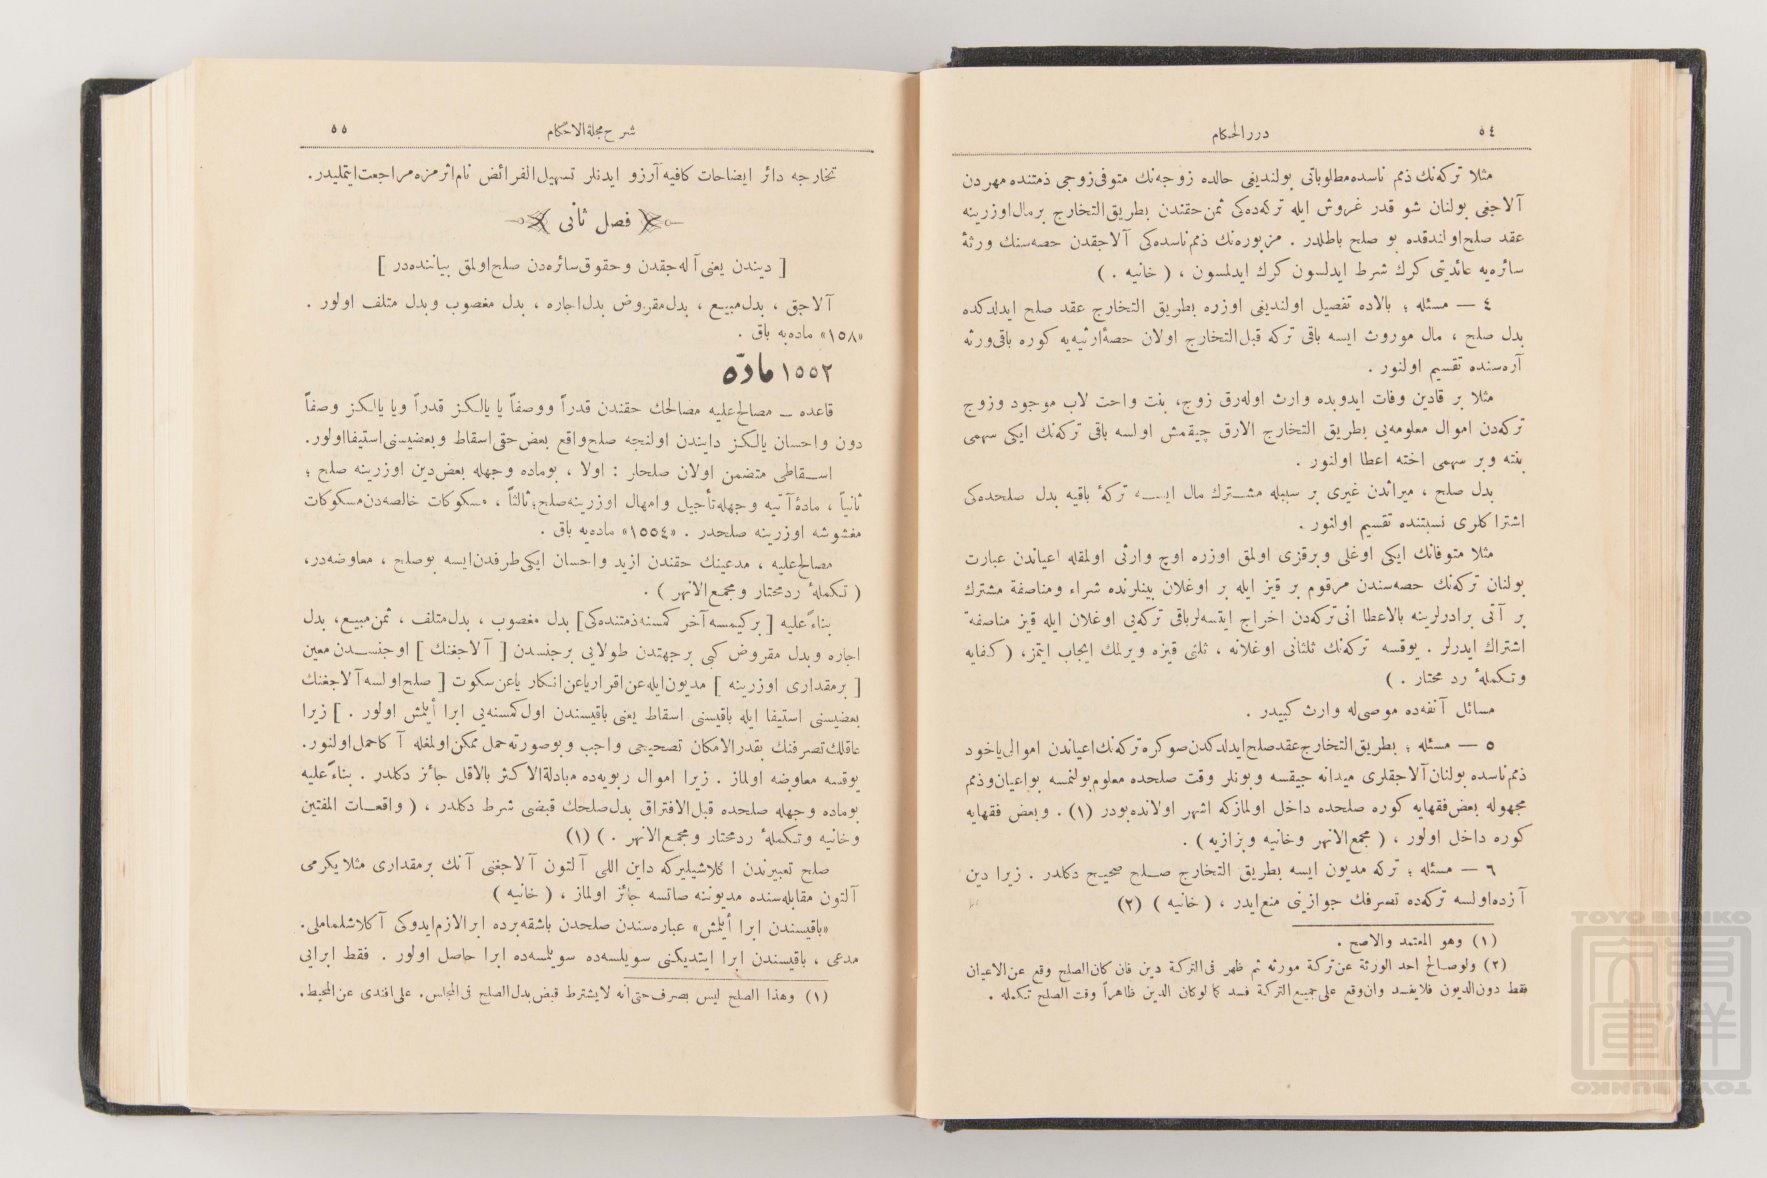 ٥٤
دررالحكام
مثلا تركه‌نك ذمم ناسده مطلوباتی بولنديغی حالده زوجه‌نك متوفی زوجی ذمتنده مهردن
آلاجغی بولنان شو قدر غروش ايله تركه‌ده‌كی ثمن حقندن بطريق‌التخارج برمال اوزرينه
عقد صلح اولندقده بو صلح باطلدر . مزبوره‌نك ذمم ناسده‌كی آلاجقدن حصه‌سنك ورثهٔ
سائره‌يه عائديتی كرك شرط ايدلسون كرك ايدلمسون ، ( خانيه . )
٤ — مسئله ؛ بالاده تفصيل اولنديغی اوزره بطريق التخارج عقد صلح ايدلدكده
بدل صلح ، مال موروث ايسه باقی تركه قبل‌التخارج اولان حصهٔ ارثيه‌يه كوره باقی ورثه
آره‌سنده تقسيم اولنور .
مثلا بر قادين وفات ايدوبده وارث اوله‌رق زوج، بنت واخت لاب موجود وزوج
تركه‌دن اموال معلومه‌يی بطريق التخارج الارق چيقمش اولسه باقی تركه‌نك ايكی سهمی
بنته وبر سهمی اخته اعطا اولنور .
بدل صلح ، ميراثدن غيری بر سببله مشترك مال ايسه تركهٔ باقيه بدل صلحده‌كی
اشتراكلری نسبتنده تقسيم اولنور .
مثلا متوفانك ايكی اوغلی وبرقزی اولمق اوزره اوچ وارثی اولمقله اعياندن عبارت
بولنان تركه‌نك حصه‌سندن مرقوم بر قيز ايله بر اوغلان بينلرنده شراء ومناصفة مشترك
بر آتی برادرلرينه بالاعطا انی تركه‌دن اخراج ايتسه‌لر باقی تركه‌يی اوغلان ايله قيز مناصفة
اشتراك ايدرلر . يوقسه تركه‌نك ثلثانی اوغلانه ، ثلثی قيزه ويرلمك ايجاب ايتمز، ( كفايه
وتكملهٔ رد محتار . )
مسائل آنفه‌ده موصی‌له وارث كبيدر .
٥ — مسئله ؛ بطريق‌التخارج عقد صلح ايدلدكدن صوكره تركه‌نك اعياندن اموالی ياخود
ذمم ناسده بولنان آلاجقلری ميدانه چيقسه وبونلر وقت صلحده معلوم بولنمسه بو اعيان وذمم
مجهوله بعض فقهايه كوره صلحده داخل اولمازكه اشهر اولانده بودر (١) . وبعض فقهايه
كوره داخل اولور ، ( مجمع‌الانهر وخانيه وبزازيه ) .
٦ — مسئله ؛ تركه مديون ايسه بطريق التخارج صلح صحيح دكلدر . زيرا دين
آزده اولسه تركه‌ده تصرفك جوازينی منع ايدر ، ( خانيه ) (٢)
(١) وهو المعتمد والاصح .
(٢) ولو صالح احد الورثة عن تركة مورثه ثم ظهر فی التركة دين فان كان الصلح وقع عن الاعيان
فقط دون الديون فلا يفسد وان وقع علی جميع التركة فسد كما لو كان الدين ظاهراً وقت الصلح تكمله .
شرح مجلة الاحكام
٥٥
تخارجه دائر ايضاحات كافيه آرزو ايدنلر تسهيل الفرائض نام اثرمزه مراجعت ايتمليدر.
فصل ثانی
[ ديندن يعنی آله جقدن وحقوق سائره‌دن صلح اولمق بياننده‌در ]
آلاجق ، بدل مبيع ، بدل مقروض بدل اجاره ، بدل مغصوب وبدل متلف اولور .
«١٥٨» ماده‌يه باق .
١٥٥٢ مادّه
قاعده — مصالح عليه مصالحك حقندن قدراً ووصفاً يا يالكز قدراً ويا يالكز وصفاً
دون واحسان يالكز دايندن اولنجه صلح واقع بعض حقی اسقاط وبعضيسنی استيفا اولور.
اسقاطی متضمن اولان صلحلر : اولا ، بوماده وجهله بعض دين اوزرينه صلح ؛
ثانياً ، مادهٔ آتيه وجهله تأجيل وامهال اوزرينه صلح؛ ثالثاً ، مسكوكات خالصه‌دن مسكوكات
مغشوشه اوزرينه صلحدر . «١٥٥٤» ماده‌يه باق .
مصالح عليه ، مدعينك حقندن ازيد واحسان ايكی طرفدن ايسه بو صلح ، معاوضه‌در،
( تكملهٔ ردمحتار ومجمع الانهر ) .
بناءً عليه [ بركيمسه آخر كمسنه ذمتنده‌كی] بدل مغصوب ، بدل متلف ، ثمن مبيع، بدل
اجاره وبدل مقروض كبی برجهتدن طولايی برجنسدن [ آلاجغنك ] او جنسدن معين
[ برمقداری اوزرينه ] مديون ايله عن اقرار ياعن انكار ياعن سكوت [ صلح اولسه آلاجغنك
بعضيسنی استيفا ايله باقيسنی اسقاط يعنی باقيسندن اول كمسنه‌يی ابرا أيلمش اولور . ] زيرا
عاقلك تصرفنك بقدرالامكان تصحيحی واجب وبوصورته حمل ممكن اولمغله آ كا حمل اولنور.
يوقسه معاوضه اولماز . زيرا اموال ربويه‌ده مبادلة الاكثر بالاقل جائز دكلدر . بناءً عليه
بوماده وجهله صلحده قبل الافتراق بدل صلحك قبضی شرط دكلدر ، ( واقعات المفتين
وخانيه وتكملهٔ ردمحتار ومجمع الانهر . ) (١)
صلح تعبيرندن اكلاشيليركه داين اللی آلتون آلاجغنی آنك برمقداری مثلا يكرمی
آلتون مقابله‌سنده مديوننه صاتسه جائز اولماز ، ( خانيه )
«باقيسندن ابرا أيلمش» عباره‌سندن صلحدن باشقه برده ابرا لازم ايدوكی آكلاشلماملی.
مدعی ، باقيسندن ابرا ايتديكنی سويلسه‌ده سويلمسه‌ده ابرا حاصل اولور . فقط ابرايی
(١) وهذا الصلح ليس بصرف حتی انه لا يشترط قبض بدل الصلح فی المجلس. علی افندی عن المحيط.
TOYO BUNKO